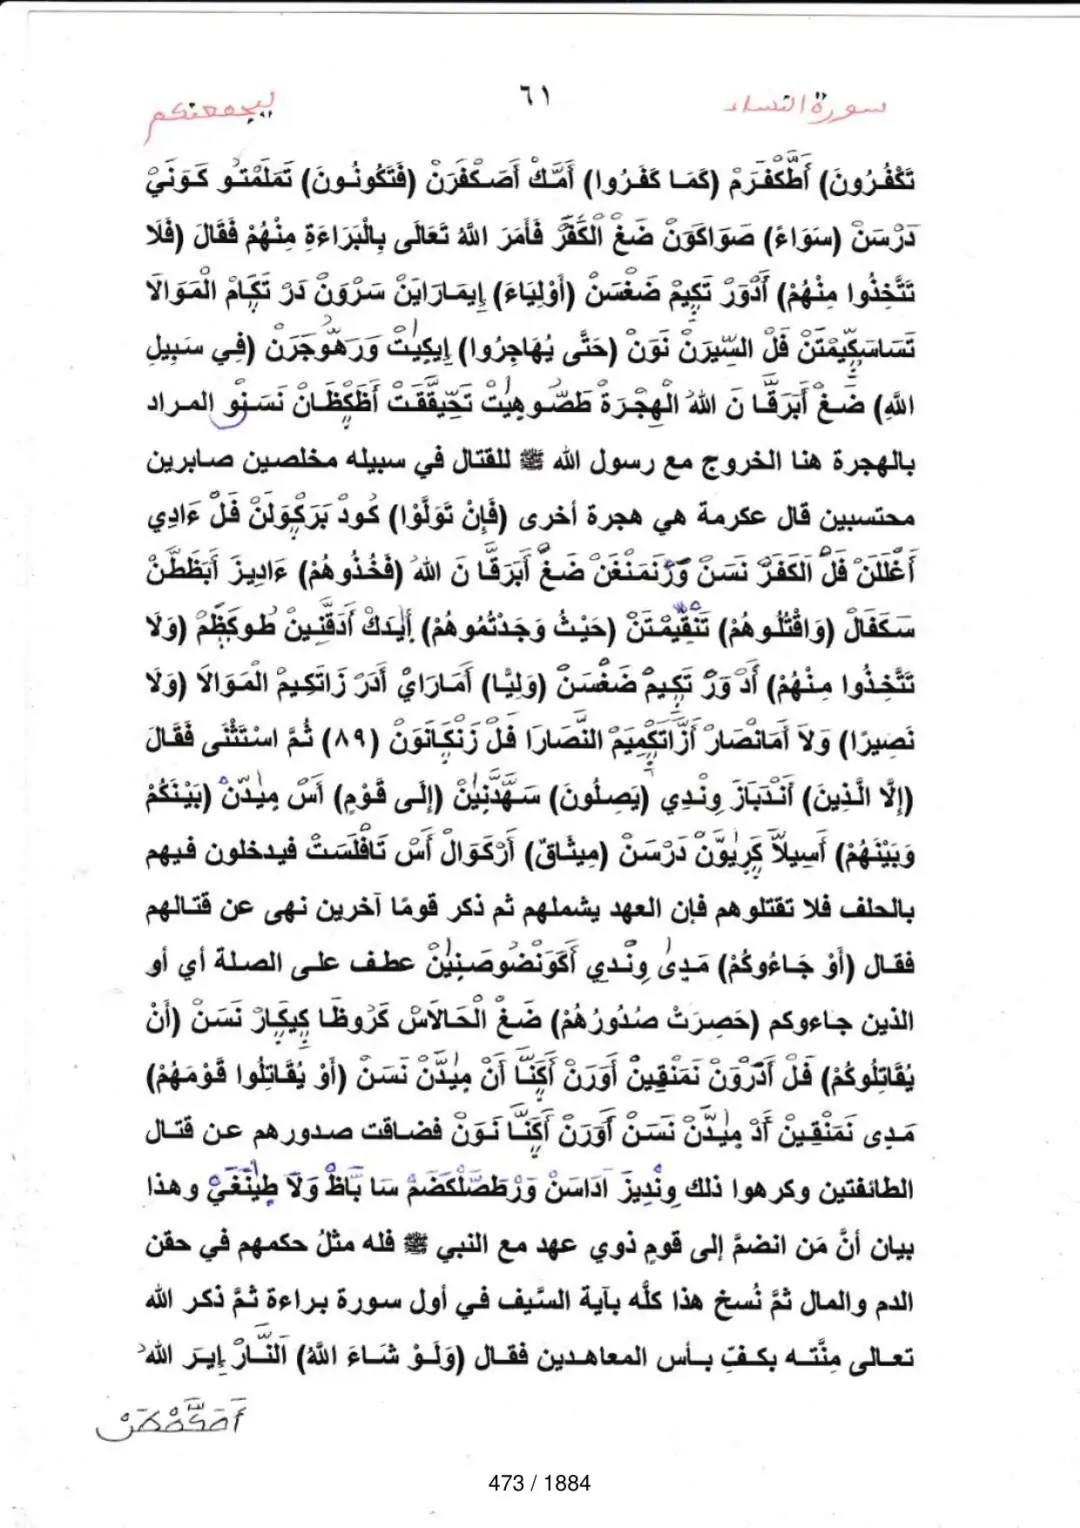 سورة النساء
٦١
ليجمعنكم
تَكْفُرُونَ) أَطَّكْفَرَمْ (كَمَا كَفَرُوا) أَمَّكْ أَصَكْفَرَنْ (فَتَكُونُونَ) تَمَلَمْتُو كَوَنَيْ
دَرْسَنْ (سَوَاءً) صَوَاكَوَنْ ضَغْ الْكَفَرْ فَأَمَرَ اللهُ تَعَالَى بِالْبَرَاءَةِ مِنْهُمْ فَقَالَ (فَلَا
تَتَّخِذُوا مِنْهُمْ) أَدْوَرْ تَكِيمْ ضَغْسَنْ (أَوْلِيَاءَ) إِيمَارَايَنْ سَرْوَنْ دَرْ تَكَامْ الْمَوَالَا
تَسَاسَكِيمْتَنْ فَلْ السِّيرَنْ نَوَنْ (حَتَّى يُهَاجِرُوا) إِيكِيتْ وَرَهَوجَرَنْ (فِي سَبِيلِ
اللهِ) ضَغْ أَبَرَقَّا نَ اللهْ الْهِجْرَةَ طَصُوهِيتْ تَحِيقَّقَتْ أَطَكْظَانْ نَسْنَو المراد
بالهجرة هنا الخروج مع رسول الله ﷺ للقتال في سبيله مخلصين صابرين
محتسبين قال عكرمة هي هجرة أخرى (فَإِنْ تَوَلَّوْا) كُودْ بَرَكْوَلَنْ فَلْ ءَادِي
أَغْلَلَنْ فَلْ الْكَفَرْ نَسَنْ وَرْنَمَنْغَنْ ضَغْ أَبَرَقَّا نَ اللهْ (فَخُذُوهُمْ) ءَادِيزَ أَبَظَطَنْ
سَكَفَالْ (وَاقْتُلُوهُمْ) تَنْقِيمْتَنْ (حَيْثُ وَجَدْتُمُوهُمْ) أَيْدَكْ أَدَقَّنِينْ طُوكَظِمْ (وَلَا
تَتَّخِذُوا مِنْهُمْ) أَدْ وَرْ تَكِيمْ ضَغْسَنْ (وَلِيًّا) أَمَارَايْ أَدَرْ زَاتَكِيمْ الْمَوَالَا (وَلَا
نَصِيرًا) وَلَا أَمَانْصَارْ أَزَّاتَكْمِيَمْ النَّصَارَا فَلْ زَنْكَانَوَنْ (٨٩) ثُمَّ اسْتَثْنَى فَقَالَ
(إِلَّا الَّذِينَ) أَنْدَبَازَ وِنْدِي (يَصِلُونَ) سَهْدَنِينْ (إِلَى قَوْمٍ) أَسْ مِيدَّنْ (بَيْنَكُمْ
وَبَيْنَهُمْ) أَسِيلَا كَرِيوَنْ دَرْسَنْ (مِيثَاقٌ) أَرْكَوَالْ أَسْ تَافَلَسَتْ فيدخلون فيهم
بالحلف فلا تقتلوهم فإن العهد يشملهم ثم ذكر قومًا آخرين نهى عن قتالهم
فقال (أَوْ جَاءُوكُمْ) مَدِى وِنْدِي أَكَوَنْضُوصَنِينْ عطف على الصلة أي أو
الذين جاءوكم (حَصِرَتْ صُدُورُهُمْ) ضَغْ الْحَالَاسْ كَرُوظَا كِيكَارْ نَسَنْ (أَنْ
يُقَاتِلُوكُمْ) فَلْ أَدَرْوَنْ نَمَنْقِينْ أَوَرَنْ أَكَنَّا أَنْ مِيدَّنْ نَسَنْ (أَوْ يُقَاتِلُوا قَوْمَهُمْ)
مَدِى نَمَنْقِينْ أَدْ مِيدَّنْ نَسَنْ أَوَرَنْ أَكَنَّا نَوَنْ فضاقت صدورهم عن قتال
الطائفتين وكرهوا ذلك وِنْدِيزْ ادَاسَنْ وَرْطَصَلْكَضَمْ سَا بَاظْ وَلَا طِينَغَيْ وهذا
بيان أنَّ مَن انضمَّ إلى قومٍ ذوي عهد مع النبي ﷺ فله مثلُ حكمهم في حقن
الدم والمال ثمَّ نُسخ هذا كلُّه بآية السَّيف في أول سورة براءة ثمَّ ذكر الله
تعالى مِنَّته بكفِّ بأس المعاهدين فقال (وَلَوْ شَاءَ اللهُ) اَلنَّارْ إِيرَ اللهْ
473 / 1884